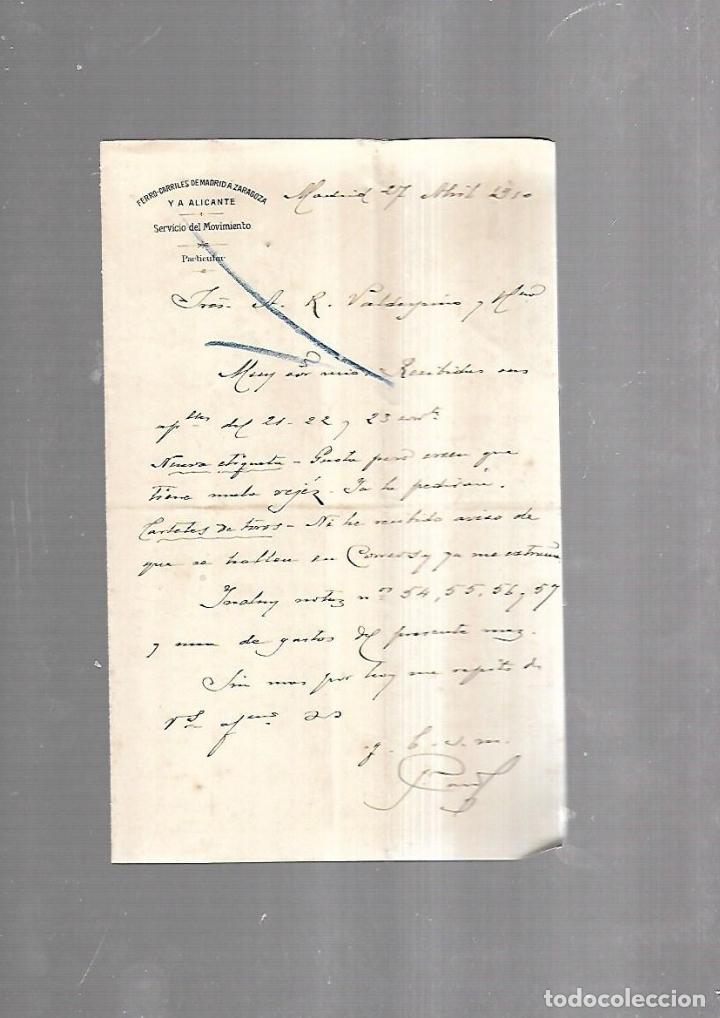 FERRO-CARRILES DE MADRID A ZARAGOZA
Y A ALICANTE
Servicio del Movimiento
Particular
Madrid 27 Abril 1910
Sres. A. R. Valdespino y Hno
Muy Sor mio: Recibidas sus
del 21-22 y 23 corrte
Nueva etiqueta - Gusta pero creen que
tiene mala vejéz. Ya la pedirán.
Carteles de toros - No he recibido aviso de
que se hallen en Correos y ya me extraña
Incluyo notas nos 54, 55, 56 y 57
y una de gastos del presente mes.
Sin mas por hoy me repito de
Vds afmo SS
q. b. s. m.
todocoleccion.net